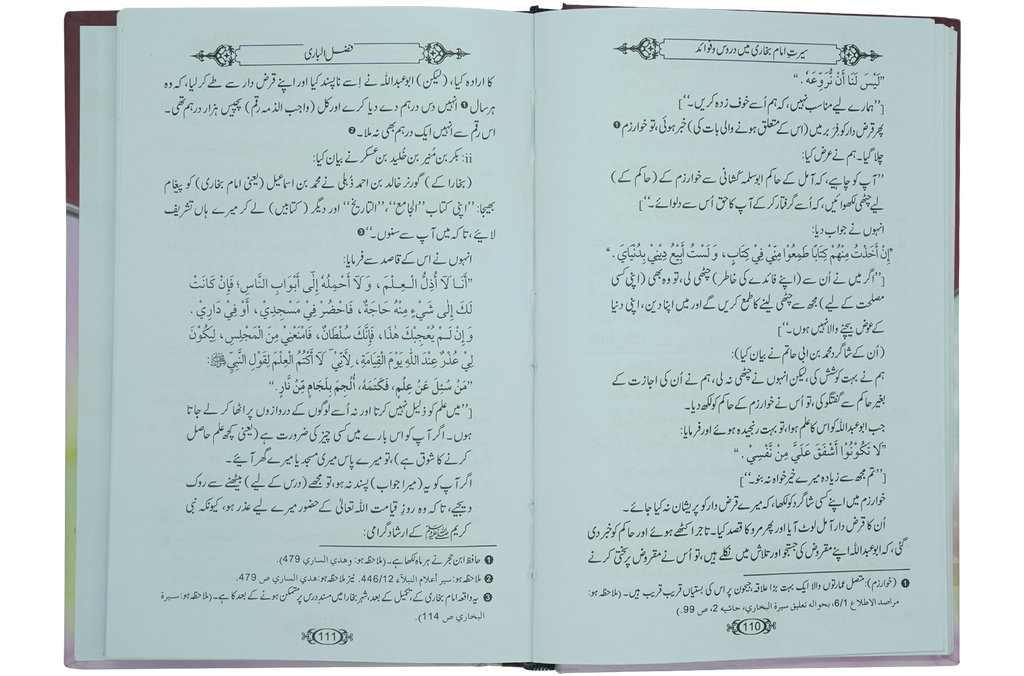 سیرتِ امام بخاری میں دروس و فوائد
”لَيْسَ لَنَا أَنْ نُرَوِّعَهُ.“
[”ہمارے لیے مناسب نہیں، کہ ہم اُسے خوف زدہ کریں۔“]
پھر قرض دار کو فَرَبر میں (اس کے متعلق ہونے والی بات کی) خبر ہوئی، تو خوارزم ❶
چلا گیا۔ ہم نے عرض کیا:
”آپ کو چاہیے، کہ آمل کے حاکم ابوسلمہ کشانی سے خوارزم کے (حاکم کے)
لیے چٹھی لکھوائیں، کہ اُسے گرفتار کر کے آپ کا حق اُس سے دلوائے۔“]
انہوں نے جواب دیا:
”إِنْ أَخَذْتُ مِنْهُمْ كِتَابًا طَمِعُوْا مِنِّيْ فِيْ كِتَابٍ، وَلَسْتُ أَبِيْعُ دِيْنِيْ بِدُنْيَايَ.“
[”اگر میں نے اُن سے (اپنے فائدے کی خاطر) چٹھی لی، تو وہ بھی (اپنی کسی
مصلحت کے لیے) مجھ سے چٹھی لینے کا طمع کریں گے اور میں اپنا دین، اپنی دنیا
کے عوض بیچنے والا نہیں ہوں۔“]
(اُن کے شاگرد محمد بن ابی حاتم نے بیان کیا):
ہم نے بہت کوشش کی، لیکن انہوں نے چٹھی نہ لی، ہم نے اُن کی اجازت کے
بغیر حاکم سے گفتگو کی، تو اُس نے خوارزم کے حاکم کو لکھ دیا۔
جب ابوعبداللہ کو اس کا علم ہوا، تو بہت رنجیدہ ہوئے اور فرمایا:
”لَا تَكُوْنُوْا أَشْفَقَ عَلَيَّ مِنْ نَّفْسِيْ.“
[”تم مجھ سے زیادہ میرے خیر خواہ نہ بنو۔“]
خوارزم میں اپنے کسی شاگرد کو لکھا، کہ میرے قرض دار کو پریشان نہ کیا جائے۔
اُن کا قرض دار آمل لوٹ آیا اور پھر مرو کا قصد کیا۔ تاجر اکٹھے ہوئے اور حاکم کو خبر دی
گئی، کہ ابوعبداللہ اپنے مقروض کی جستجو اور تلاش میں نکلے ہیں، تو اُس نے مقروض پر سختی کرنے
❶ (خوارزم): متصل عمارتوں والا ایک بہت بڑا علاقہ جیحون پر اس کی بستیاں قریب قریب ہیں۔ (ملاحظہ ہو:
مراصد الاطلاع 6/1، بحوالہ تعلیق سیرة البخاري، حاشیہ 2، ص 99.)
110
فضل الباری
کا ارادہ کیا، (لیکن) ابوعبداللہ نے اسے ناپسند کیا اور اپنے قرض دار سے طے کر لیا، کہ وہ
ہر سال ❶ انہیں دس درہم دے دیا کرے اور کل (واجب الذمہ رقم) پچیس ہزار درہم تھی۔
اس رقم سے انہیں ایک درہم بھی نہ ملا۔ ❷
ii: بکر بن مُنیر بن خُلید بن عسکر نے بیان کیا:
(بخارا کے) گورنر خالد بن احمد ذہلی نے محمد بن اسماعیل (یعنی امام بخاری) کو پیغام
بھیجا: ”اپنی کتاب ”الجامع“، ”التاریخ“ اور دیگر (کتابیں) لے کر میرے ہاں تشریف
لائیے، تاکہ میں آپ سے سنوں۔“ ❸
انہوں نے اس کے قاصد سے فرمایا:
”أَنَا لَا أُذِلُّ الْعِلْمَ، وَلَا أَحْمِلُهُ إِلَى أَبْوَابِ النَّاسِ؛ فَإِنْ كَانَتْ
لَكَ إِلَى شَيْءٍ مِنْهُ حَاجَةٌ، فَاحْضُرْ فِيْ مَسْجِدِيْ، أَوْ فِيْ دَارِيْ.
وَإِنْ لَمْ يُعْجِبْكَ هٰذَا، فَإِنَّكَ سُلْطَانٌ، فَامْنَعْنِيْ مِنَ الْمَجْلِسِ، لِيَكُوْنَ
لِيْ عُذْرٌ عِنْدَ اللّٰهِ يَوْمَ الْقِيَامَةِ، لِأَنِّيْ لَا أَكْتُمُ الْعِلْمَ لِقَوْلِ النَّبِيِّ ﷺ:
”مَنْ سُئِلَ عَنْ عِلْمٍ، فَكَتَمَهُ، أُلْجِمَ بِلِجَامٍ مِّنْ نَّارٍ.“
[”میں علم کو ذلیل نہیں کرتا اور نہ اُسے لوگوں کے دروازوں پر اٹھا کر لے جاتا
ہوں۔ اگر آپ کو اس بارے میں کسی چیز کی ضرورت ہے (یعنی کچھ علم حاصل
کرنے کا شوق ہے)، تو میرے پاس میری مسجد یا میرے گھر آئیے۔
اگر آپ کو یہ (میرا جواب) پسند نہ ہو، تو مجھے (درس کے لیے) بیٹھنے سے روک
دیجیے، تاکہ وہ روزِ قیامت اللہ تعالیٰ کے حضور میرے لیے عذر ہو، کیونکہ نبی
کریم ﷺ کے ارشادِ گرامی:
❶ حافظ ابن حجر نے ہر ماہ لکھا ہے۔ (ملاحظہ ہو: وهدي الساري 479).
❷ ملاحظہ ہو: سیر أعلام النبلاء 446/12. نیز ملاحظہ ہو: هدي الساري ص 479.
❸ یہ واقعہ امام بخاری کے، تکمیل کے بعد، شہر بخارا میں مسندِ درس پر متمکن ہونے کے بعد کا ہے۔ (ملاحظہ ہو: سیرة
البخاري ص 114).
111